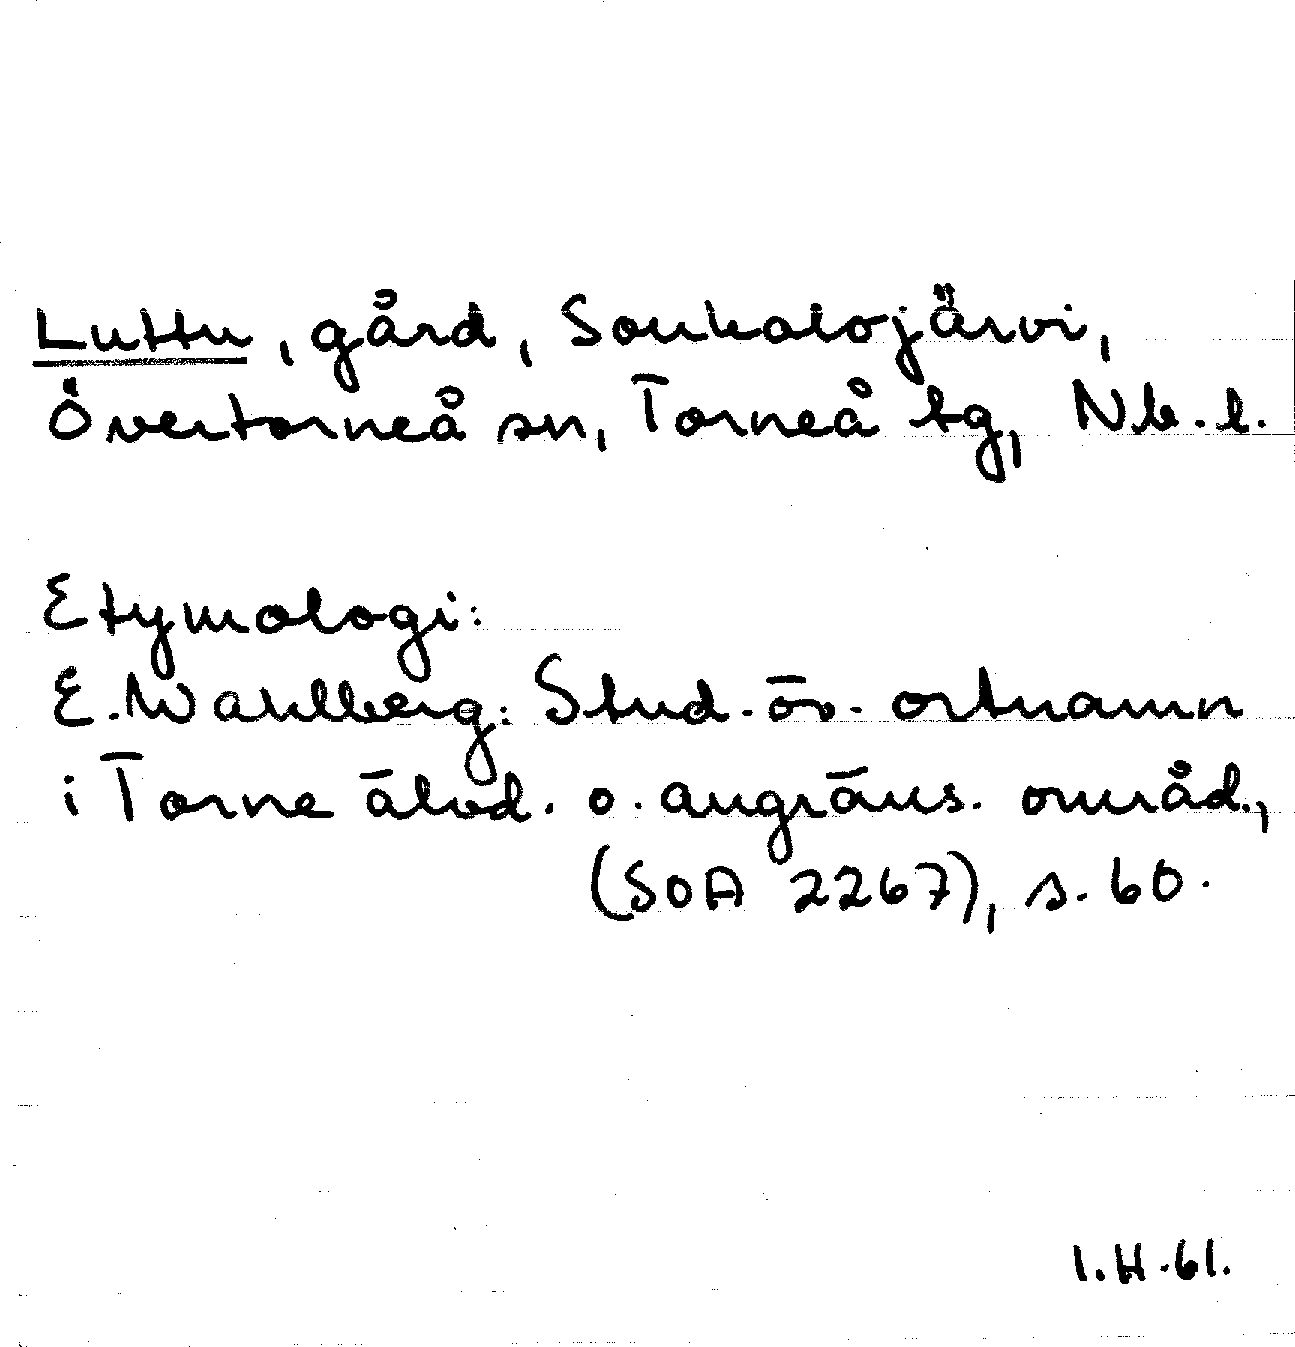 Luttu, gård, Soukolojärvi,
Övertorneå sn, Torneå tg, Nb.l.
Etymologi:
E. Wahlberg: Stud. öv. ortnamn
i Torne älvd. o. angräns. områd.,
(SOA 2267), s. 60.
I.H.61.